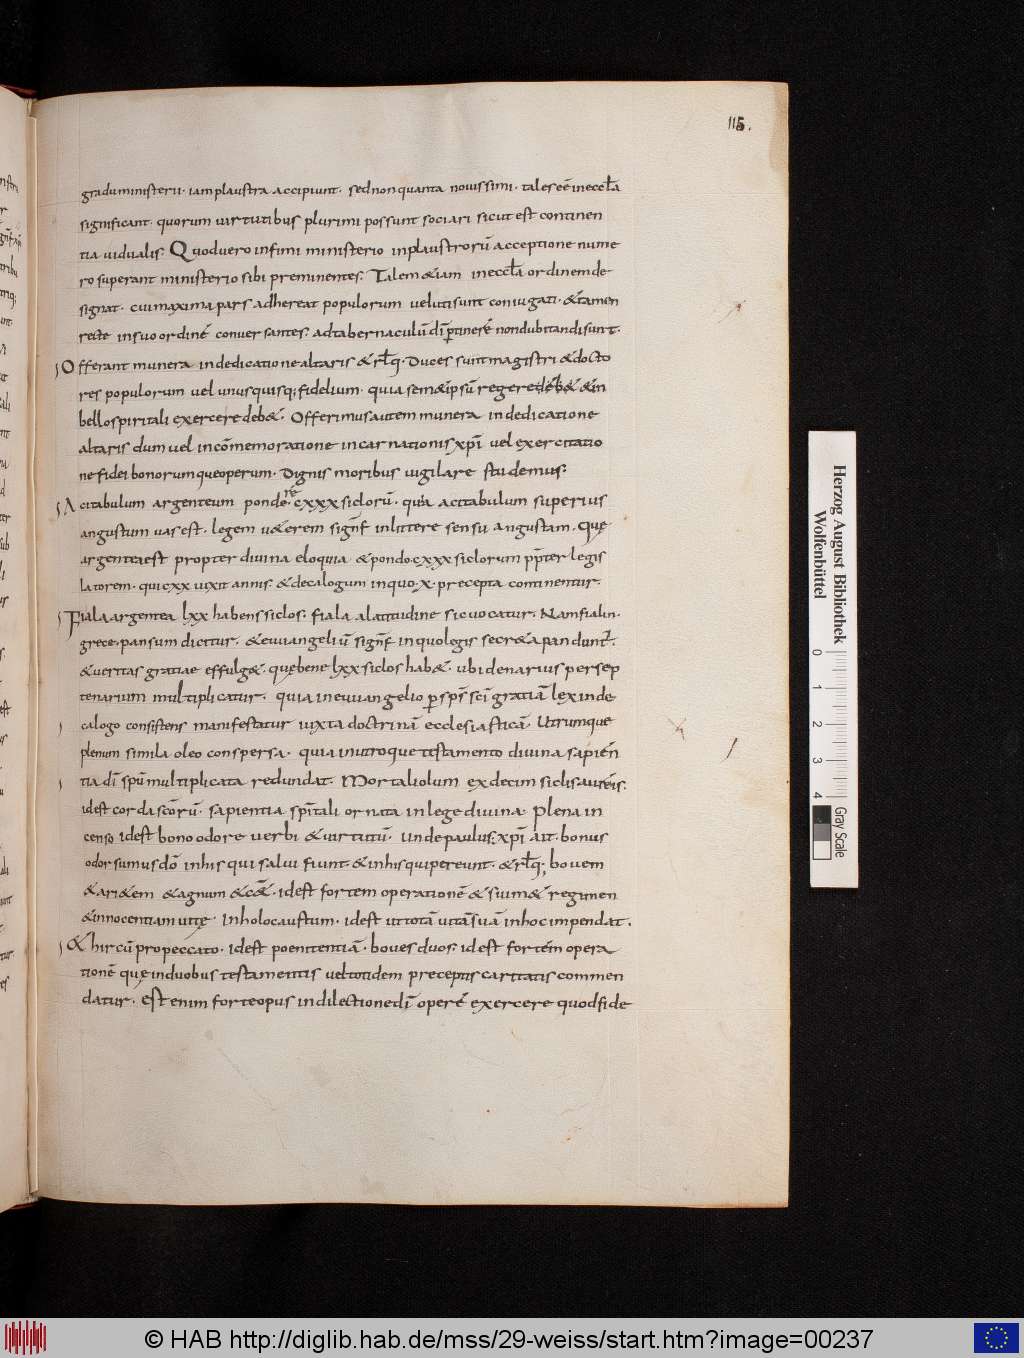 115.
gradu ministerii. iam plaustra accipiunt. sed non quanta nouissimi. tales eē in eccła
significant. quorum uirtutibus plurimi possunt sociari sicut est continen
tia uidualis. Quod uero infimi ministerio in plaustrorū acceptione nume
ro superant ministerio sibi preminentes. Talem &iam in eccła ordinem de
signat. cui maxima pars adhereat populorum uelut sunt coniugati. & tamen
recte in suo ordinē conuersantes. ad tabernaculū dī ptinere non dubitandi sunt.
Offerant munera in dedicatione altaris & rłq. Duces sunt magistri & docto
res populorum uel unusquisq; fidelium. quia sem&ipsū regere deb& & in
bello spiritali exercere deb&. Offerimus autem munera in dedicatione
altaris dum uel in cōmemoratione incarnationis xpī uel exercitatio
ne fidei bonorumque operum. Dignis moribus uigilare studemus.
Acitabulum argenteum pondere cxxx siclorū. quia acitabulum superius
angustum uas est. legem u&erem signf in littere sensu angustam. Quę
argentea est propter diuina eloquia. & pondo cxxx siclorum ppter legis
latorem. qui cxx uixit annis. & decalogum in quo .x. precepta continentur.
Fiala argentea lxx habens siclos. fiala a latitudine sic uocatur. Nam fialin.
grece. pansum dicitur. & euuangeliū signf in quo legis secr&a pandunt.
& ueritas gratiae effulg&. quę bene lxx siclos hab&. ubi denarius per sep
tenarium multiplicatur. quia in euuangelio p spm sci gratiā lex in de
calogo consistens manifestatur iuxta doctrinā ecclesiasticā. Utrumque
plenum simila oleo conspersa. quia in utroque testamento diuina sapien
tia dī spū multiplicata redundat. Mortaliolum ex decim siclis aureis.
id est corda scōrū. sapientia spitali ornata in lege diuina. Plena in
censo id est bono odore uerbi & uirtutū. Unde paulus; xpī ait. bonus
odor sumus dō in his qui salui fiunt. & in his qui pereunt. & rłq; bouem
& ari&em & agnum &c&. id est fortem operationē & suim& regimen
& innocentiam uitę. In holocaustum. id est ut totā uitā suā in hoc impendat.
& hircū pro peccato. id est poenitentiā. boues duos. id est fortem opera
tionē quę in duobus testamentis uel totidem preceptis caritatis commen
datur. est enim forte opus in dilectione dī operē exercere quod fide
Herzog August Bibliothek
Wolfenbüttel
0 1 2 3 4
Gray Scale
© HAB http://diglib.hab.de/mss/29-weiss/start.htm?image=00237